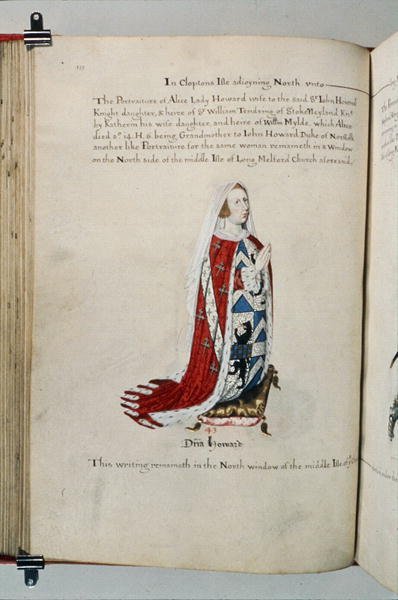 In Cloptons Isle adioyning North vnto
The Portraiture of Alice Lady Howard wife to the said Sr Iohn Howard
Knight daughter, & heire of Sr William Tendring of StokeNeyland Knt
by Katherin his wife daughter, and heire of Willm Mylde, which Alice
died ao 14. H. 6. being Grandmother to Iohn Howard Duke of Norfolk
another like Portraiture for the same woman remaineth in a Window
on the North side of the middle Isle of Long Melford Church aforesaid.
43
Dna Howard
This writing remaineth in the North window of the middle Isle of